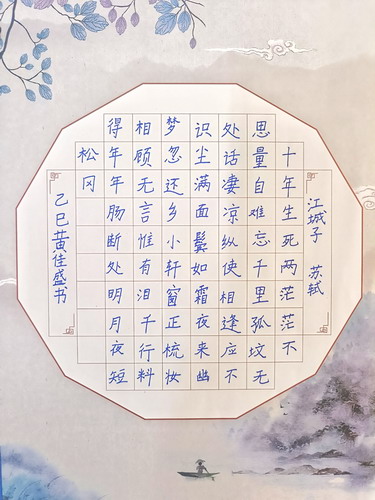 江城子 苏轼
十年生死两茫茫不
思量自难忘千里孤坟无
处话凄凉纵使相逢应不
识尘满面鬓如霜夜来幽
梦忽还乡小轩窗正梳妆
相顾无言惟有泪千行料
得年年肠断处明月夜短
松冈
乙巳黄佳盛书